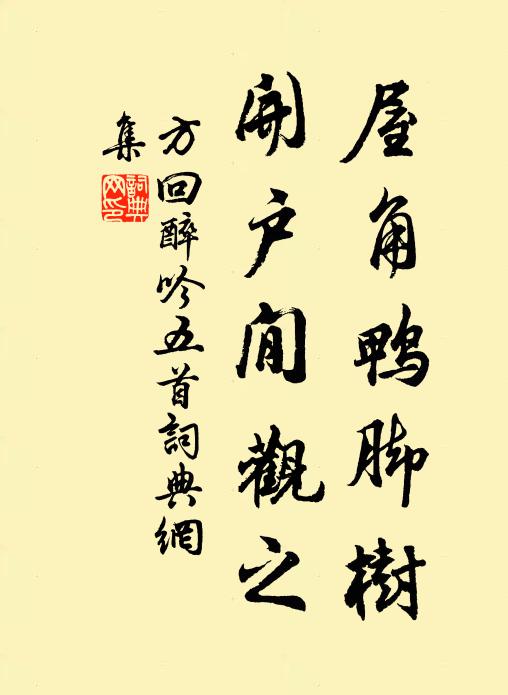 屋角鴨脚樹
開户閒觀之
方回醉吟五首詞典網
集
詞典網印